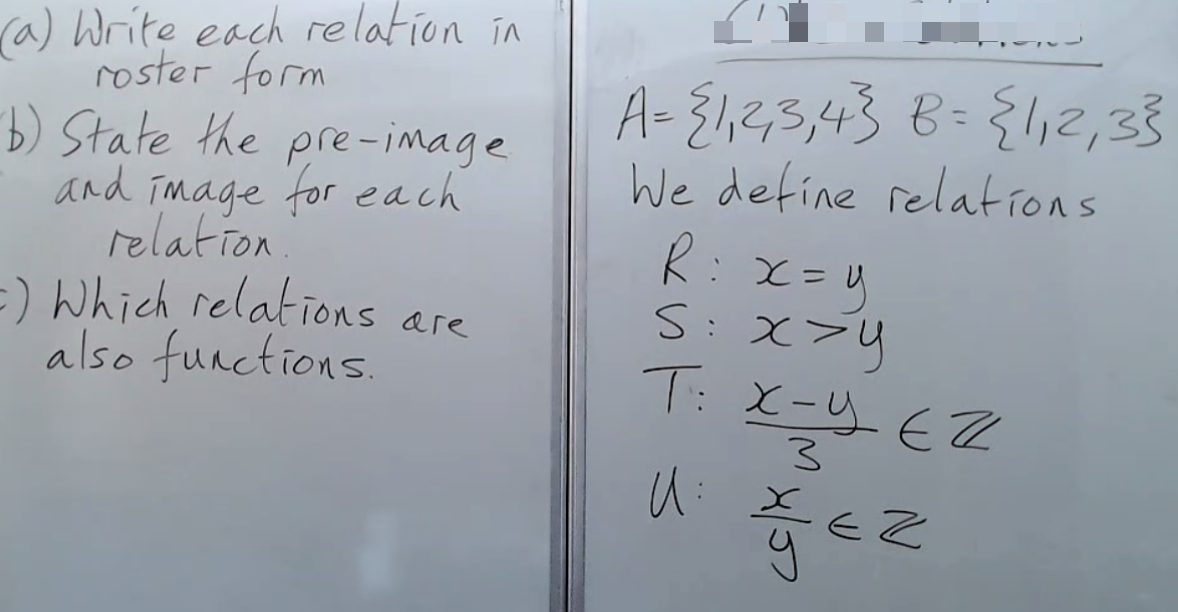 (a) Write each relation in
roster form
b) State the pre-image
and image for each
relation.
c) Which relations are
also functions.
A = {1,2,3,4} B = {1,2,3}
We define relations
R: x = y
S: x > y
T: x-y/3 ∈ ℤ
U: x/y ∈ ℤ